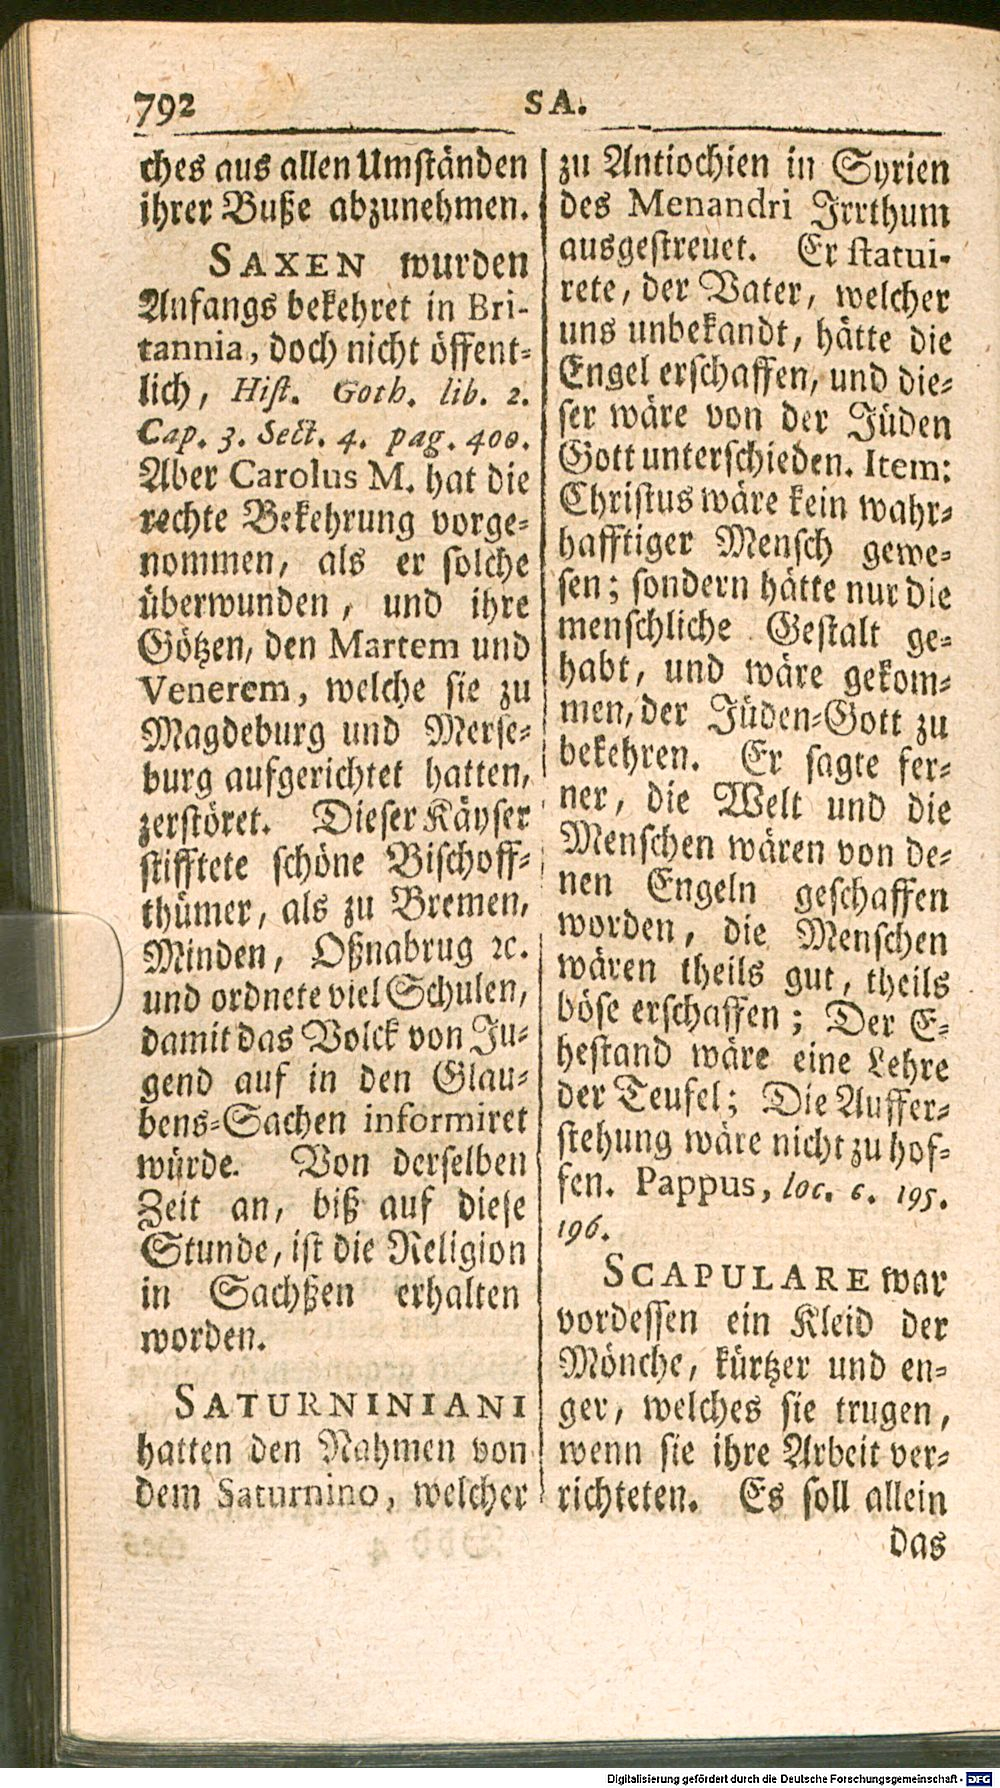 792 SA.
ches aus allen Umständen
ihrer Buße abzunehmen.
SAXEN wurden
Anfangs bekehret in Bri-
tannia, doch nicht öffent-
lich, Hist. Goth. lib. 2.
Cap. 3. Sect. 4. pag. 400.
Aber Carolus M. hat die
rechte Bekehrung vorge-
nommen, als er solche
überwunden, und ihre
Götzen, den Martem und
Venerem, welche sie zu
Magdeburg und Merse-
burg aufgerichtet hatten,
zerstöret. Dieser Käyser
stifftete schöne Bischoff-
thümer, als zu Bremen,
Minden, Oßnabrug ꝛc.
und ordnete viel Schulen,
damit das Volck von Ju-
gend auf in den Glau-
bens-Sachen informiret
würde. Von derselben
Zeit an, biß auf diese
Stunde, ist die Religion
in Sachßen erhalten
worden.
SATURNINIANI
hatten den Nahmen von
dem Saturnino, welcher
zu Antiochien in Syrien
des Menandri Irrthum
ausgestreuet. Er statui-
rete, der Vater, welcher
uns unbekandt, hätte die
Engel erschaffen, und die-
ser wäre von der Jüden
Gott unterschieden. Item:
Christus wäre kein wahr-
hafftiger Mensch gewe-
sen; sondern hätte nur die
menschliche Gestalt ge-
habt, und wäre gekom-
men, der Jüden-Gott zu
bekehren. Er sagte fer-
ner, die Welt und die
Menschen wären von de-
nen Engeln geschaffen
worden, die Menschen
wären theils gut, theils
böse erschaffen; Der E-
hestand wäre eine Lehre
der Teufel; Die Auffer-
stehung wäre nicht zu hof-
fen. Pappus, loc. c. 195.
196.
SCAPULARE war
vordessen ein Kleid der
Mönche, kürtzer und en-
ger, welches sie trugen,
wenn sie ihre Arbeit ver-
richteten. Es soll allein
das
Digitalisierung gefördert durch die Deutsche Forschungsgemeinschaft - DFG